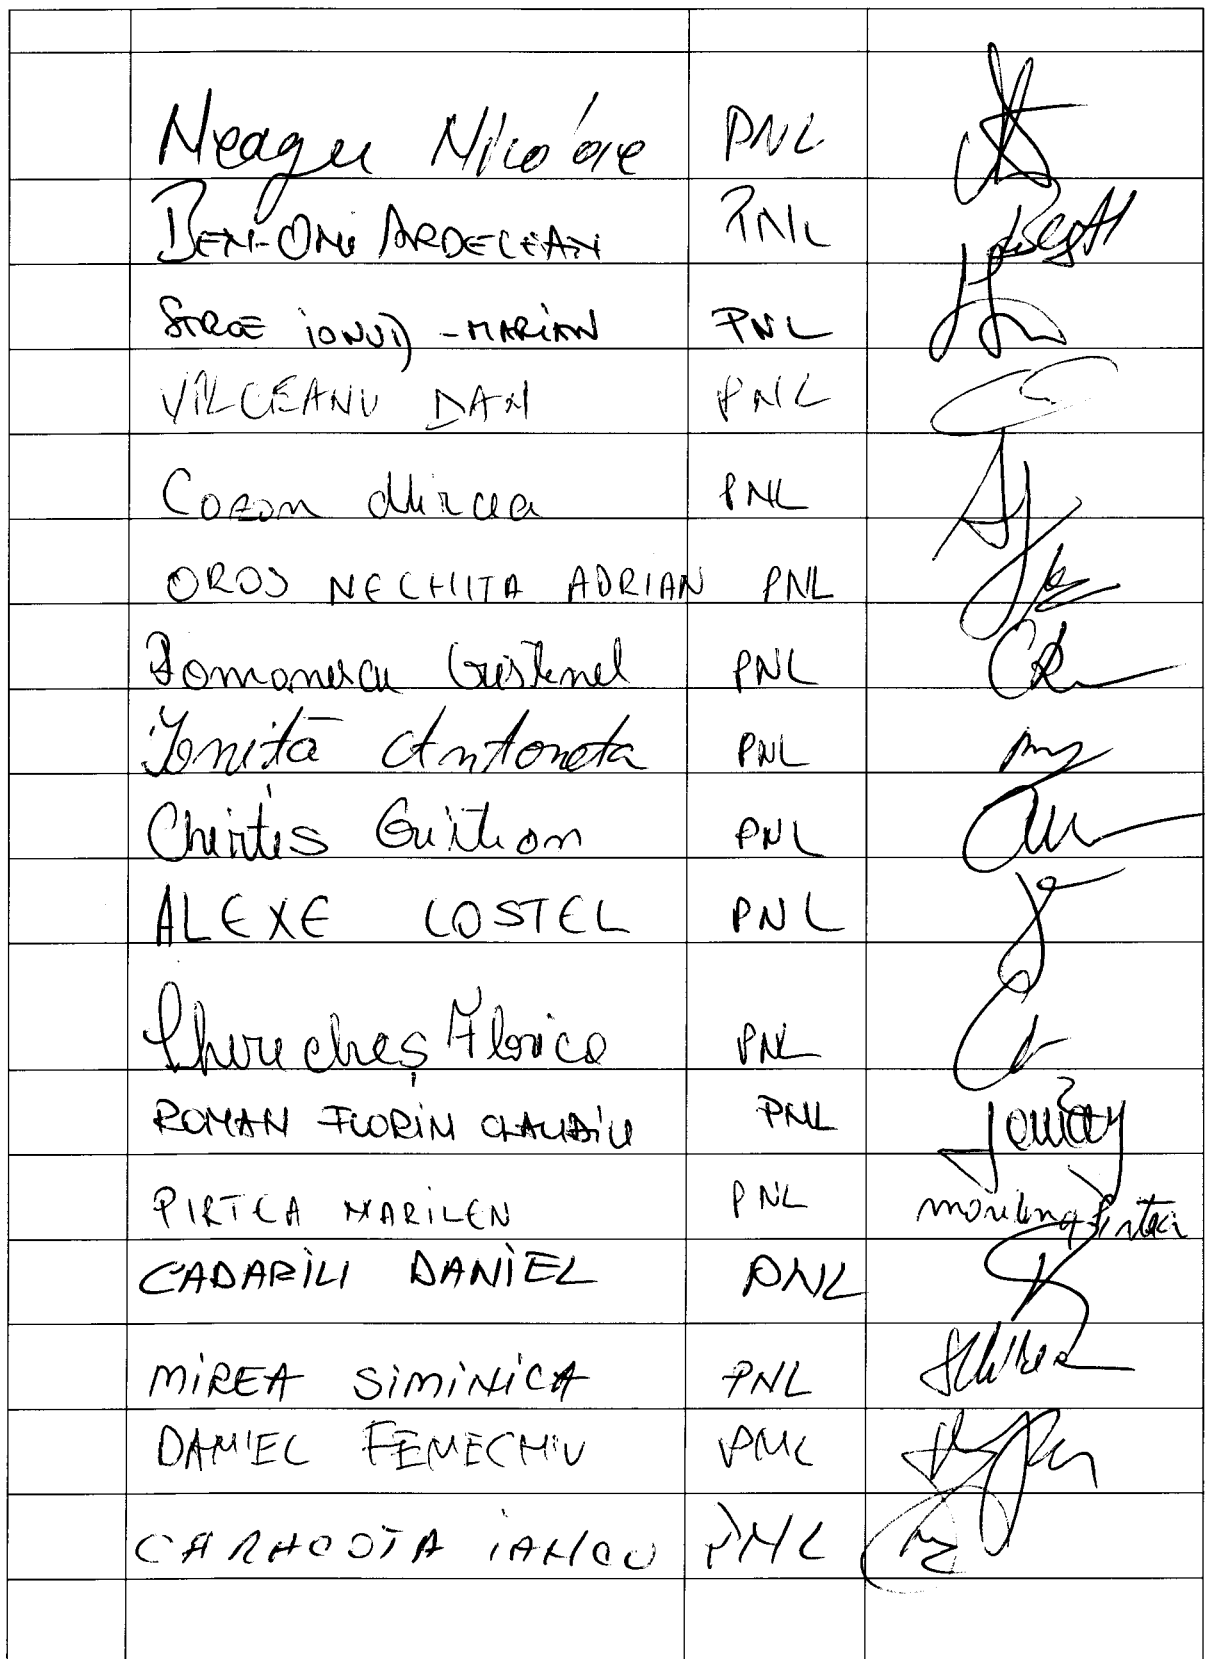 Neagu Nicolae PNL
BEN-ONI ARDELEAN PNL
STROE IONUȚ -MARIAN PNL
VÎLCEANU DAN PNL
Mircea PNL
OROS NECHITA ADRIAN PNL
Romanescu Cristinel PNL
Ioniță Antoneta PNL
Chirteș Cristian PNL
ALEXE COSTEL PNL
Chereches Florica PNL
ROMAN FLORIN CLAUDIU PNL
PIRTEA MARILEN PNL marilena Pirtea
DANIEL PNL
MIREA SIMINICA PNL
DANIEL FENECHIU PNL
IANCU PNL